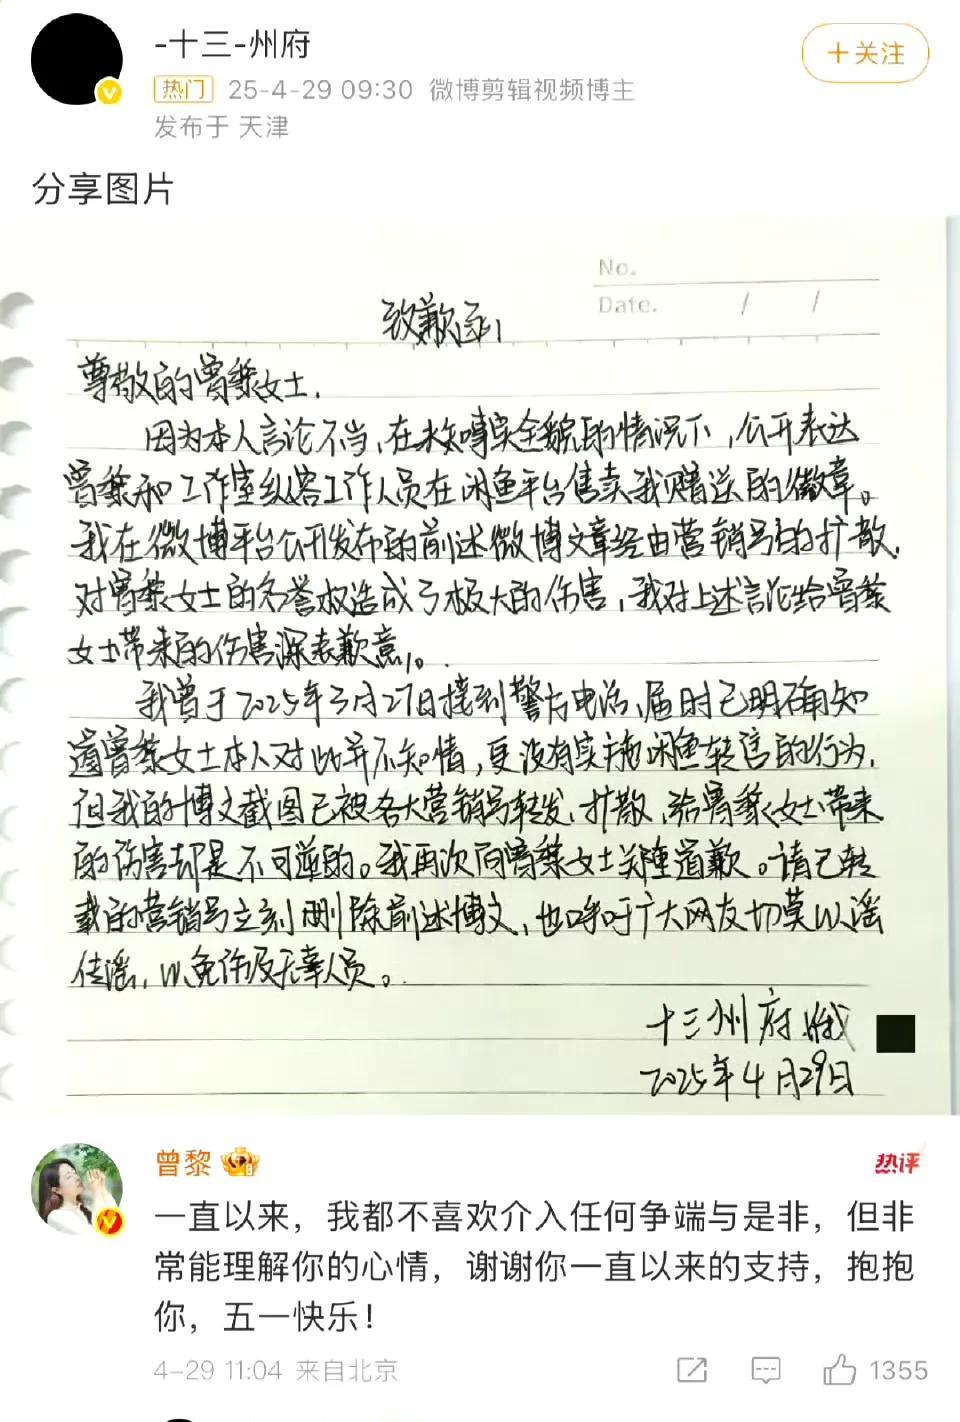 -十三-州府
+关注
热门 25-4-29 09:30 微博剪辑视频博主
发布于 天津
分享图片
No.
Date. / /
致歉函
尊敬的曾黎女士.
因为本人言论不当,在未知晓事实全貌的情况下,公开表达
曾黎和工作室纵容工作人员在闲鱼平台售卖我赠送的徽章。
我在微博平台公开发布的前述微博文章经由营销号的扩散,
对曾黎女士的名誉权造成了极大的伤害,我对上述言论给曾黎
女士带来的伤害深表歉意。
我曾于2025年3月27日接到警方电话,届时已明确知
道曾黎女士本人对此并不知情,更没有实施闲鱼转售的行为,
但我的博文截图已被各大营销号转发、扩散,给曾黎女士带来
的伤害却是不可逆的。我再次向曾黎女士郑重道歉。请已转
载的营销号立刻删除前述博文,也呼吁广大网友切莫以谣
传谣,以免伤及无辜人员。
十三州府
2025年4月29日
曾黎
热评
一直以来，我都不喜欢介入任何争端与是非，但非
常能理解你的心情，谢谢你一直以来的支持，抱抱
你，五一快乐！
4-29 11:04 来自北京
1355